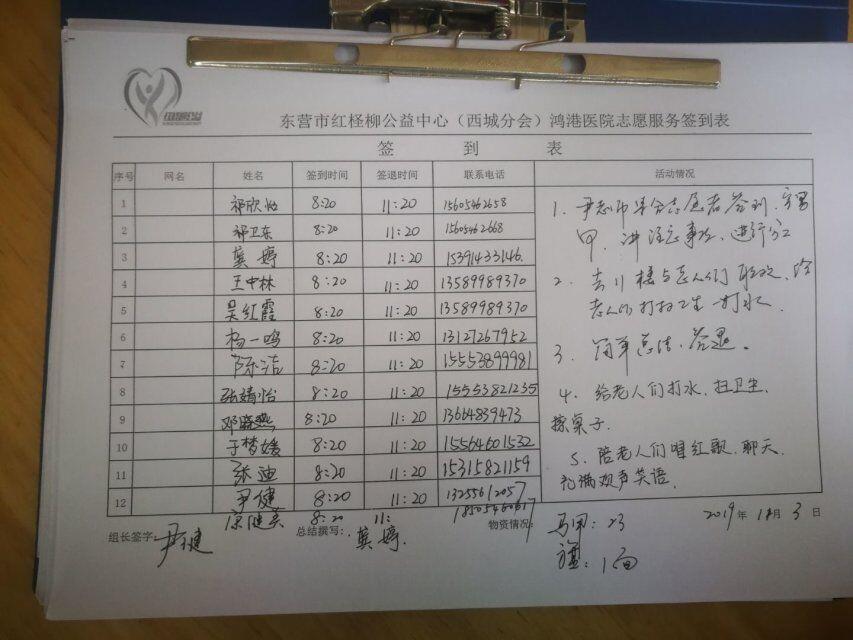 东营市红柽柳公益中心（西城分会）鸿港医院志愿服务签到表
签到表
序号 网名 姓名 签到时间 签退时间 联系电话 活动情况
1 祁欣怡 8:20 11:20 15605462658
2 祁卫东 8:20 11:20 15605462668
3 龚婷 8:20 11:20 15391433146.
4 王中林 8:20 11:20 13589989370
5 吴红霞 8:20 11:20 13589989370
6 杨一鸣 8:20 11:20 13127267952
7 陈洁 8:20 11:20 15553899981
8 张婧怡 8:20 11:20 15553821235
9 邓晓燕 8:20 11:20 13664839473
10 于梦媛 8:20 11:20 15564601532
11 张迪 8:20 11:20 15315821159
12 尹健 8:20 11:20 13255612057
8:20 11: 18505460617
1. 尹老师组织志愿者签到、穿马
甲、讲注意事项、进行分工
2. 去川楼与老人们联欢、给
老人们打扫卫生 打水.
3. 简单总结、签退。
4. 给老人们打水、扫卫生、
擦桌子.
5. 陪老人们唱红歌、聊天.
充满欢声笑语.
组长签字: 尹健 总结撰写: 龚婷. 物资情况: 马甲: 23 2019年 11月 3日
旗: 1面